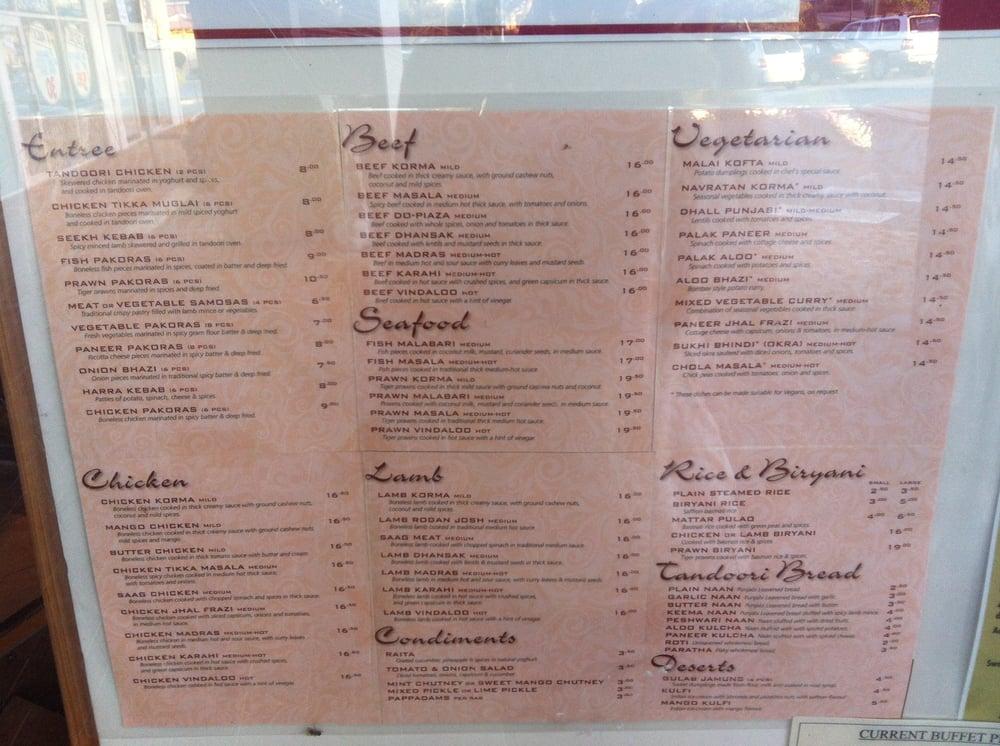 Entree
TANDOORI CHICKEN (2 PCS) 8.00
Skewered chicken marinated in yoghurt and spices,
and cooked in tandoori oven.
CHICKEN TIKKA MUGLAI (6 PCS) 8.00
Boneless chicken pieces marinated in mild spiced yoghurt
and cooked in tandoori oven.
SEEKH KEBAB (6 PCS) 8.00
Spicy minced lamb skewered and grilled in tandoori oven.
FISH PAKORAS (6 PCS) 9.00
Boneless fish pieces marinated in spices, coated in batter and deep fried.
PRAWN PAKORAS (6 PCS) 10.50
Tiger prawns marinated in spices and deep fried.
MEAT OR VEGETABLE SAMOSAS (4 PCS) 6.50
Traditional crispy pastry filled with lamb mince or vegetables.
VEGETABLE PAKORAS (8 PCS) 7.00
Fresh vegetables marinated in spicy gram flour batter & deep fried.
PANEER PAKORAS (8 PCS) 8.00
Ricotta cheese pieces marinated in spicy batter & deep fried.
ONION BHAZI (6 PCS) 7.50
Onion pieces marinated in traditional spicy batter & deep fried.
HARRA KEBAB (6 PCS) 8.00
Patties of potato, spinach, cheese & spices.
CHICKEN PAKORAS (6 PCS) 9.00
Boneless chicken marinated in spicy batter & deep fried.
Beef
BEEF KORMA MILD 16.00
Beef cooked in thick creamy sauce, with ground cashew nuts,
coconut and mild spices.
BEEF MASALA MEDIUM 16.00
Spicy beef cooked in medium hot thick sauce, with tomatoes and onions.
BEEF DO-PIAZA MEDIUM 16.00
Beef cooked with whole spices, onion and tomatoes in thick sauce.
BEEF DHANSAK MEDIUM 16.00
Beef cooked with lentils and mustard seeds in thick sauce.
BEEF MADRAS MEDIUM-HOT 16.00
Beef in medium hot and sour sauce with curry leaves and mustard seeds.
BEEF KARAHI MEDIUM-HOT 16.00
Beef cooked in hot sauce with crushed spices, and green capsicum in thick sauce.
BEEF VINDALOO HOT 16.00
Beef cooked in hot sauce with a hint of vinegar
Seafood
FISH MALABARI MEDIUM 17.00
Fish pieces cooked in coconut milk, mustard, coriander seeds, in medium sauce.
FISH MASALA MEDIUM-HOT 17.00
Fish pieces cooked in traditional thick medium-hot sauce.
PRAWN KORMA MILD 19.50
Tiger prawns cooked in thick mild sauce with ground cashew nuts and coconut.
PRAWN MALABARI MEDIUM 19.50
Prawns cooked with coconut milk, mustard and coriander seeds, in medium sauce.
PRAWN MASALA MEDIUM-HOT 19.50
Tiger prawns cooked in traditional thick medium hot sauce.
PRAWN VINDALOO HOT 19.50
Tiger prawns cooked in hot sauce with a hint of vinegar
Vegetarian
MALAI KOFTA MILD 14.50
Potato dumplings cooked in chef's special sauce.
NAVRATAN KORMA* MILD 14.50
Seasonal vegetables cooked in thick creamy sauce with
DHALL PUNJASI* MILD-MEDIUM 14.50
Lentils cooked with tomatoes and spices.
PALAK PANEER MEDIUM 14.50
Spinach cooked with cottage cheese and spices.
PALAK ALOO* MEDIUM 14.50
Spinach cooked with potatoes and spices.
ALOO BHAZI* MEDIUM 14.50
Bombay style potato curry.
MIXED VEGETABLE CURRY* MEDIUM 14.50
Combination of seasonal vegetables cooked in thick sauce.
PANEER JHAL FRAZI MEDIUM 14.50
Cottage cheese with capsicum, onions & tomatoes, in medium-hot sauce.
SUKHI BHINDI* (OKRA) MEDIUM-HOT 14.50
Sliced okra sauteed with diced onions, tomatoes and spices.
CHOLA MASALA* MEDIUM-HOT 14.50
Chick peas cooked with tomatoes, onion and spices.
* These dishes can be made suitable for Vegans, on request
Chicken
CHICKEN KORMA MILD 16.50
Boneless chicken cooked in thick creamy sauce with ground cashew nuts,
coconut and mild spices.
MANGO CHICKEN MILD 16.50
Boneless chicken cooked in thick creamy sauce with ground cashew nuts
mild spices and mango.
BUTTER CHICKEN MILD 16.50
Boneless chicken cooked in thick tomato sauce with butter and cream.
CHICKEN TIKKA MASALA MEDIUM 16.50
Boneless spicy chicken cooked in medium hot thick sauce,
with tomatoes and onions.
SAAG CHICKEN MEDIUM 16.50
Boneless chicken cooked with chopped spinach and spices in thick sauce.
CHICKEN JHAL FRAZI MEDIUM 16.50
Boneless chicken cooked with sliced capsicum, onions and tomatoes,
in medium hot sauce.
CHICKEN MADRAS MEDIUM-HOT 16.50
Boneless chicken in medium hot and sour sauce, with curry leaves
and mustard seeds.
CHICKEN KARAHI MEDIUM-HOT 16.50
Boneless chicken cooked in hot sauce with crushed spices,
and green capsicum in thick sauce.
CHICKEN VINDALOO HOT 16.50
Boneless chicken cooked in hot sauce with a hint of vinegar
Lamb
LAMB KORMA MILD 16.00
Boneless lamb cooked in thick creamy sauce, with ground cashew nuts,
coconut and mild spices.
LAMB ROGAN JOSH MEDIUM 16.00
Boneless lamb cooked in traditional medium hot sauce
SAAG MEAT MEDIUM 16.00
Boneless lamb cooked with chopped spinach in traditional medium sauce.
LAMB DHANSAK MEDIUM 16.00
Boneless lamb cooked with lentils & mustard seeds in thick sauce.
LAMB MADRAS MEDIUM-HOT 16.00
Boneless lamb in medium hot and sour sauce, with curry leaves & mustard seeds.
LAMB KARAHI MEDIUM-HOT 16.00
Boneless lamb cooked in hot sauce with crushed spices,
and green capsicum in thick sauce.
LAMB VINDALOO HOT 16.00
Boneless lamb cooked in hot sauce with a hint of vinegar
Condiments
RAITA 3.50
Grated cucumber, pineapple & spices in natural yoghurt
TOMATO & ONION SALAD 3.50
Diced tomatoes, onions, capsicum & cucumber
MINT CHUTNEY OR SWEET MANGO CHUTNEY 3.00
MIXED PICKLE OR LIME PICKLE 3.00
PAPPADAMS PER BAS 3.00
Rice & Biryani
SMALL LARGE
PLAIN STEAMED RICE 2.50 3.50
BIRYANI RICE 3.00 5.00
Saffron basmati rice
MATTAR PULAO 4.00 6.50
Basmati rice cooked with green peas and spices.
CHICKEN OR LAMB BIRYANI 16.00
Cooked with basmati rice & spices.
PRAWN BIRYANI 19.00
Tiger prawns cooked with basmati rice & spices.
Tandoori Bread
PLAIN NAAN Punjabi Leavened bread
GARLIC NAAN Punjabi Leavened bread with garlic
BUTTER NAAN Punjabi Leavened bread with butter
KEEMA NAAN Punjabi Leavened bread stuffed with spicy lamb mince
PESHWARI NAAN Naan stuffed with dried fruits
ALOO KULCHA Naan stuffed with spiced potatoes
PANEER KULCHA Naan stuffed with spiced cheese
ROTI Unleavened wholemeal bread
PARATHA Flaky wholemeal bread
Deserts
GULAB JAMUNS (4 PCS) 4.50
Sweet dumplings made from flour, milk and soaked in rose syrup.
KULFI 4.50
Indian ice-cream with almonds and pistachio nuts with saffron flavour
MANGO KULFI 5.50
Indian ice-cream with mango flavour
CURRENT BUFFET P